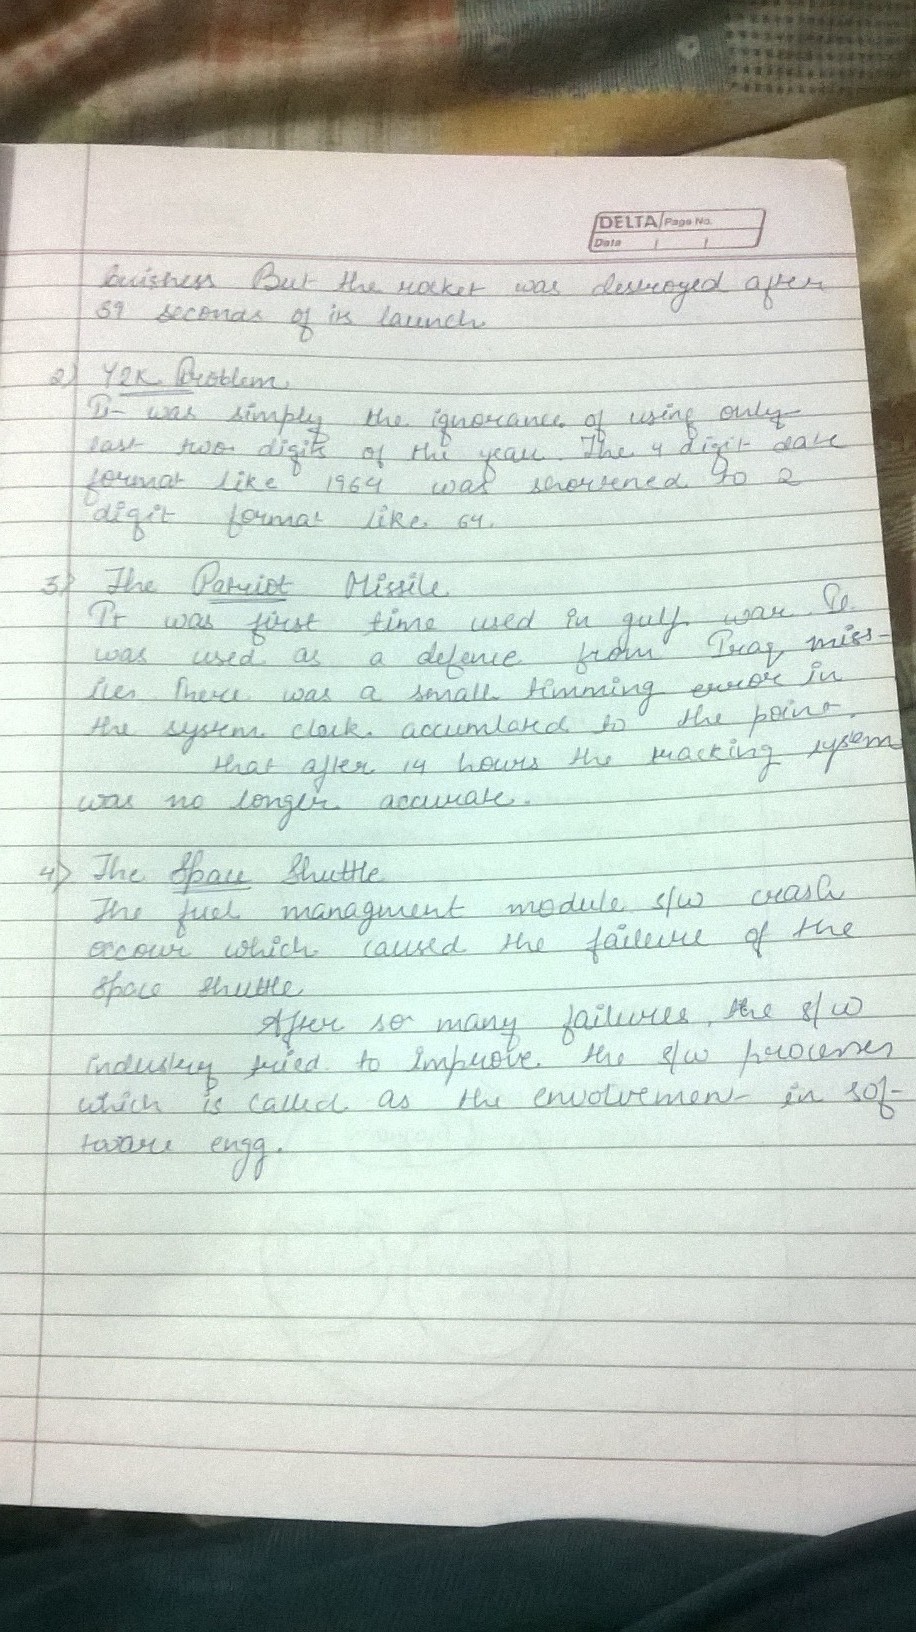 DELTA Page No.
Date
buisness But the rocket was destroyed after
39 seconds of its launch
2) Y2K Problem.
It was simply the ignorance of using only
last two digits of the year. The 4 digit date
format like 1964 was shortened to 2
digit format like 64.
3) The Patriot Missile
It was first time used in gulf war. It
was used as a defence from Iraq miss-
iles There was a small timming error in
the system clock accumlated to the point
that after 14 hours the tracking system
was no longer accurate.
4) The Space Shuttle
The fuel managment module s/w crash
occour which caused the failure of the
Space Shuttle
After so many failures, the s/w
industry tried to improve the s/w processes
which is called as the envolvement in sof-
tware engg.